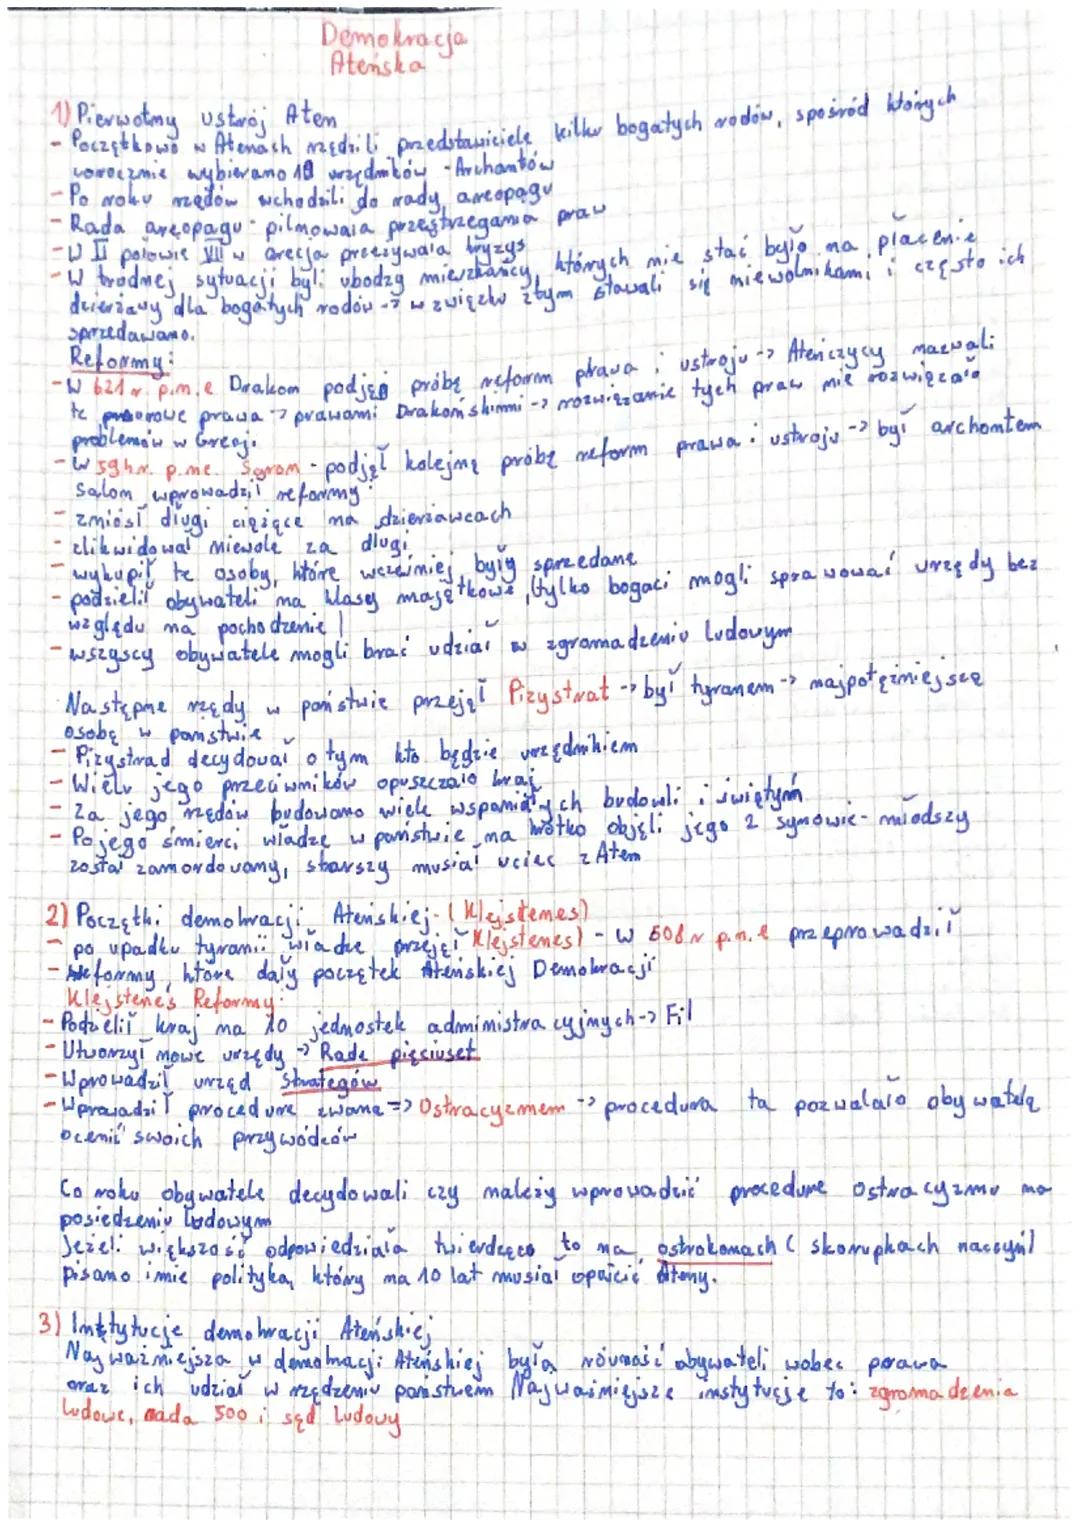 Demokracja
Ateńska
1) Pierwotny ustrój Aten
- Początkowo w Atenach rządzili przedstawiciele kilku bogatych rodów, spośród których
corocznie wybierano 10 urzędników - Archontów
- Po roku rządów wchodzili do rady areopagu
- Rada areopagu - pilnowała przestrzegania praw
- W II połowie VII w Grecja przeżywała kryzys
- W trudnej sytuacji byli ubodzy mieszkańcy, których nie stać było na płacenie
dzierżawy dla bogatych rodów -> w związku z tym stawali się niewolnikami i często ich
sprzedawano.
Reformy:
- W 621 r. p.n.e Drakon podjął próbę reform prawa i ustroju -> Ateńczycy nazwali
te surowe prawa -> prawami Drakońskimi -> rozwiązanie tych praw nie rozwiązało
problemów w Grecji.
- W 594r. p.ne. - podjął kolejną próbę reform prawa i ustroju -> był archontem
Salon wprowadził reformy:
- zniósł długi ciążące na dzierżawcach
- zlikwidował niewolę za długi
- wykupił te osoby, które wcześniej były sprzedane
- podzielił obywateli na klasy majątkowe (tylko bogaci mogli sprawować urzędy bez
względu na pochodzenie)
- wszyscy obywatele mogli brać udział w zgromadzeniu ludowym
Następne rządy w państwie przejął Pizystrat -> był tyranem -> najpotężniejszą
osobą w państwie
- Pizystrad decydował o tym kto będzie urzędnikiem
- Wielu jego przeciwników opuszczało kraj
- Za jego rządów budowano wiele wspaniałych budowli i świątyń
- Po jego śmierci władzę w państwie na krótko objęli jego 2 synowie - młodszy
został zamordowany, starszy musiał uciec z Aten
2) Początki demokracji Ateńskiej - (Klejstenes)
- po upadku tyranii władze przejął Klejstenes) - w 508 r p.n.e przeprowadził
- Reformy, które dały początek Ateńskiej Demokracji
Klejstenes Reformy:
- Podzielił kraj na 10 jednostek administracyjnych -> Fil
- Utworzył nowe urzędy -> Rade pięciuset
- Wprowadził urząd Strategów
- Wprowadził procedure zwaną => Ostracyzmem -> procedura ta pozwalało obywatelą
ocenić swoich przywódców
Co roku obywatele decydowali czy należy wprowadzić procedurę ostracyzmu na
posiedzeniu ludowym
Jeżeli większość odpowiedziała twierdząco to na ostrokonach ( skorupkach naczyń)
pisano imie polityka, który na 10 lat musiał opuścić Ateny.
3) Instytucje demokracji Ateńskiej
Najważniejsza w demokracji Ateńskiej była równość obywateli wobec prawa
oraz ich udział w rządzeniu państwem Najważniejsze instytucje to: zgromadzenia
ludowe, rada 500 i sąd ludowy